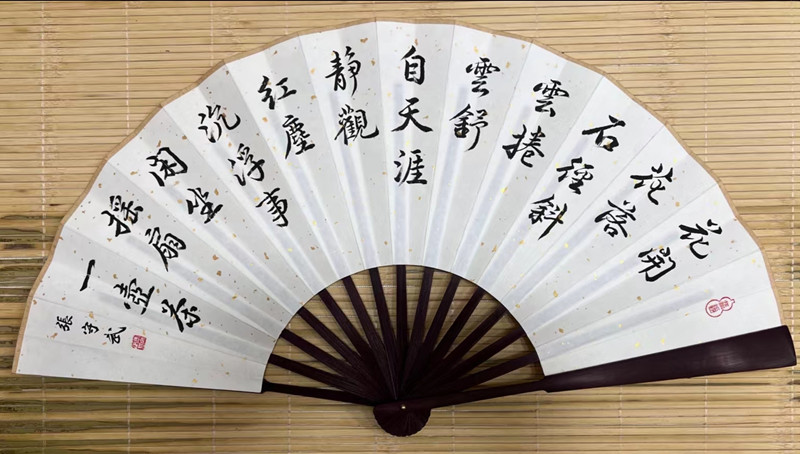 花開
花落
石徑斜
雲捲
雲舒
自天涯
靜觀
紅塵
沉浮事
閑坐
搖扇
一壺茶
張守武